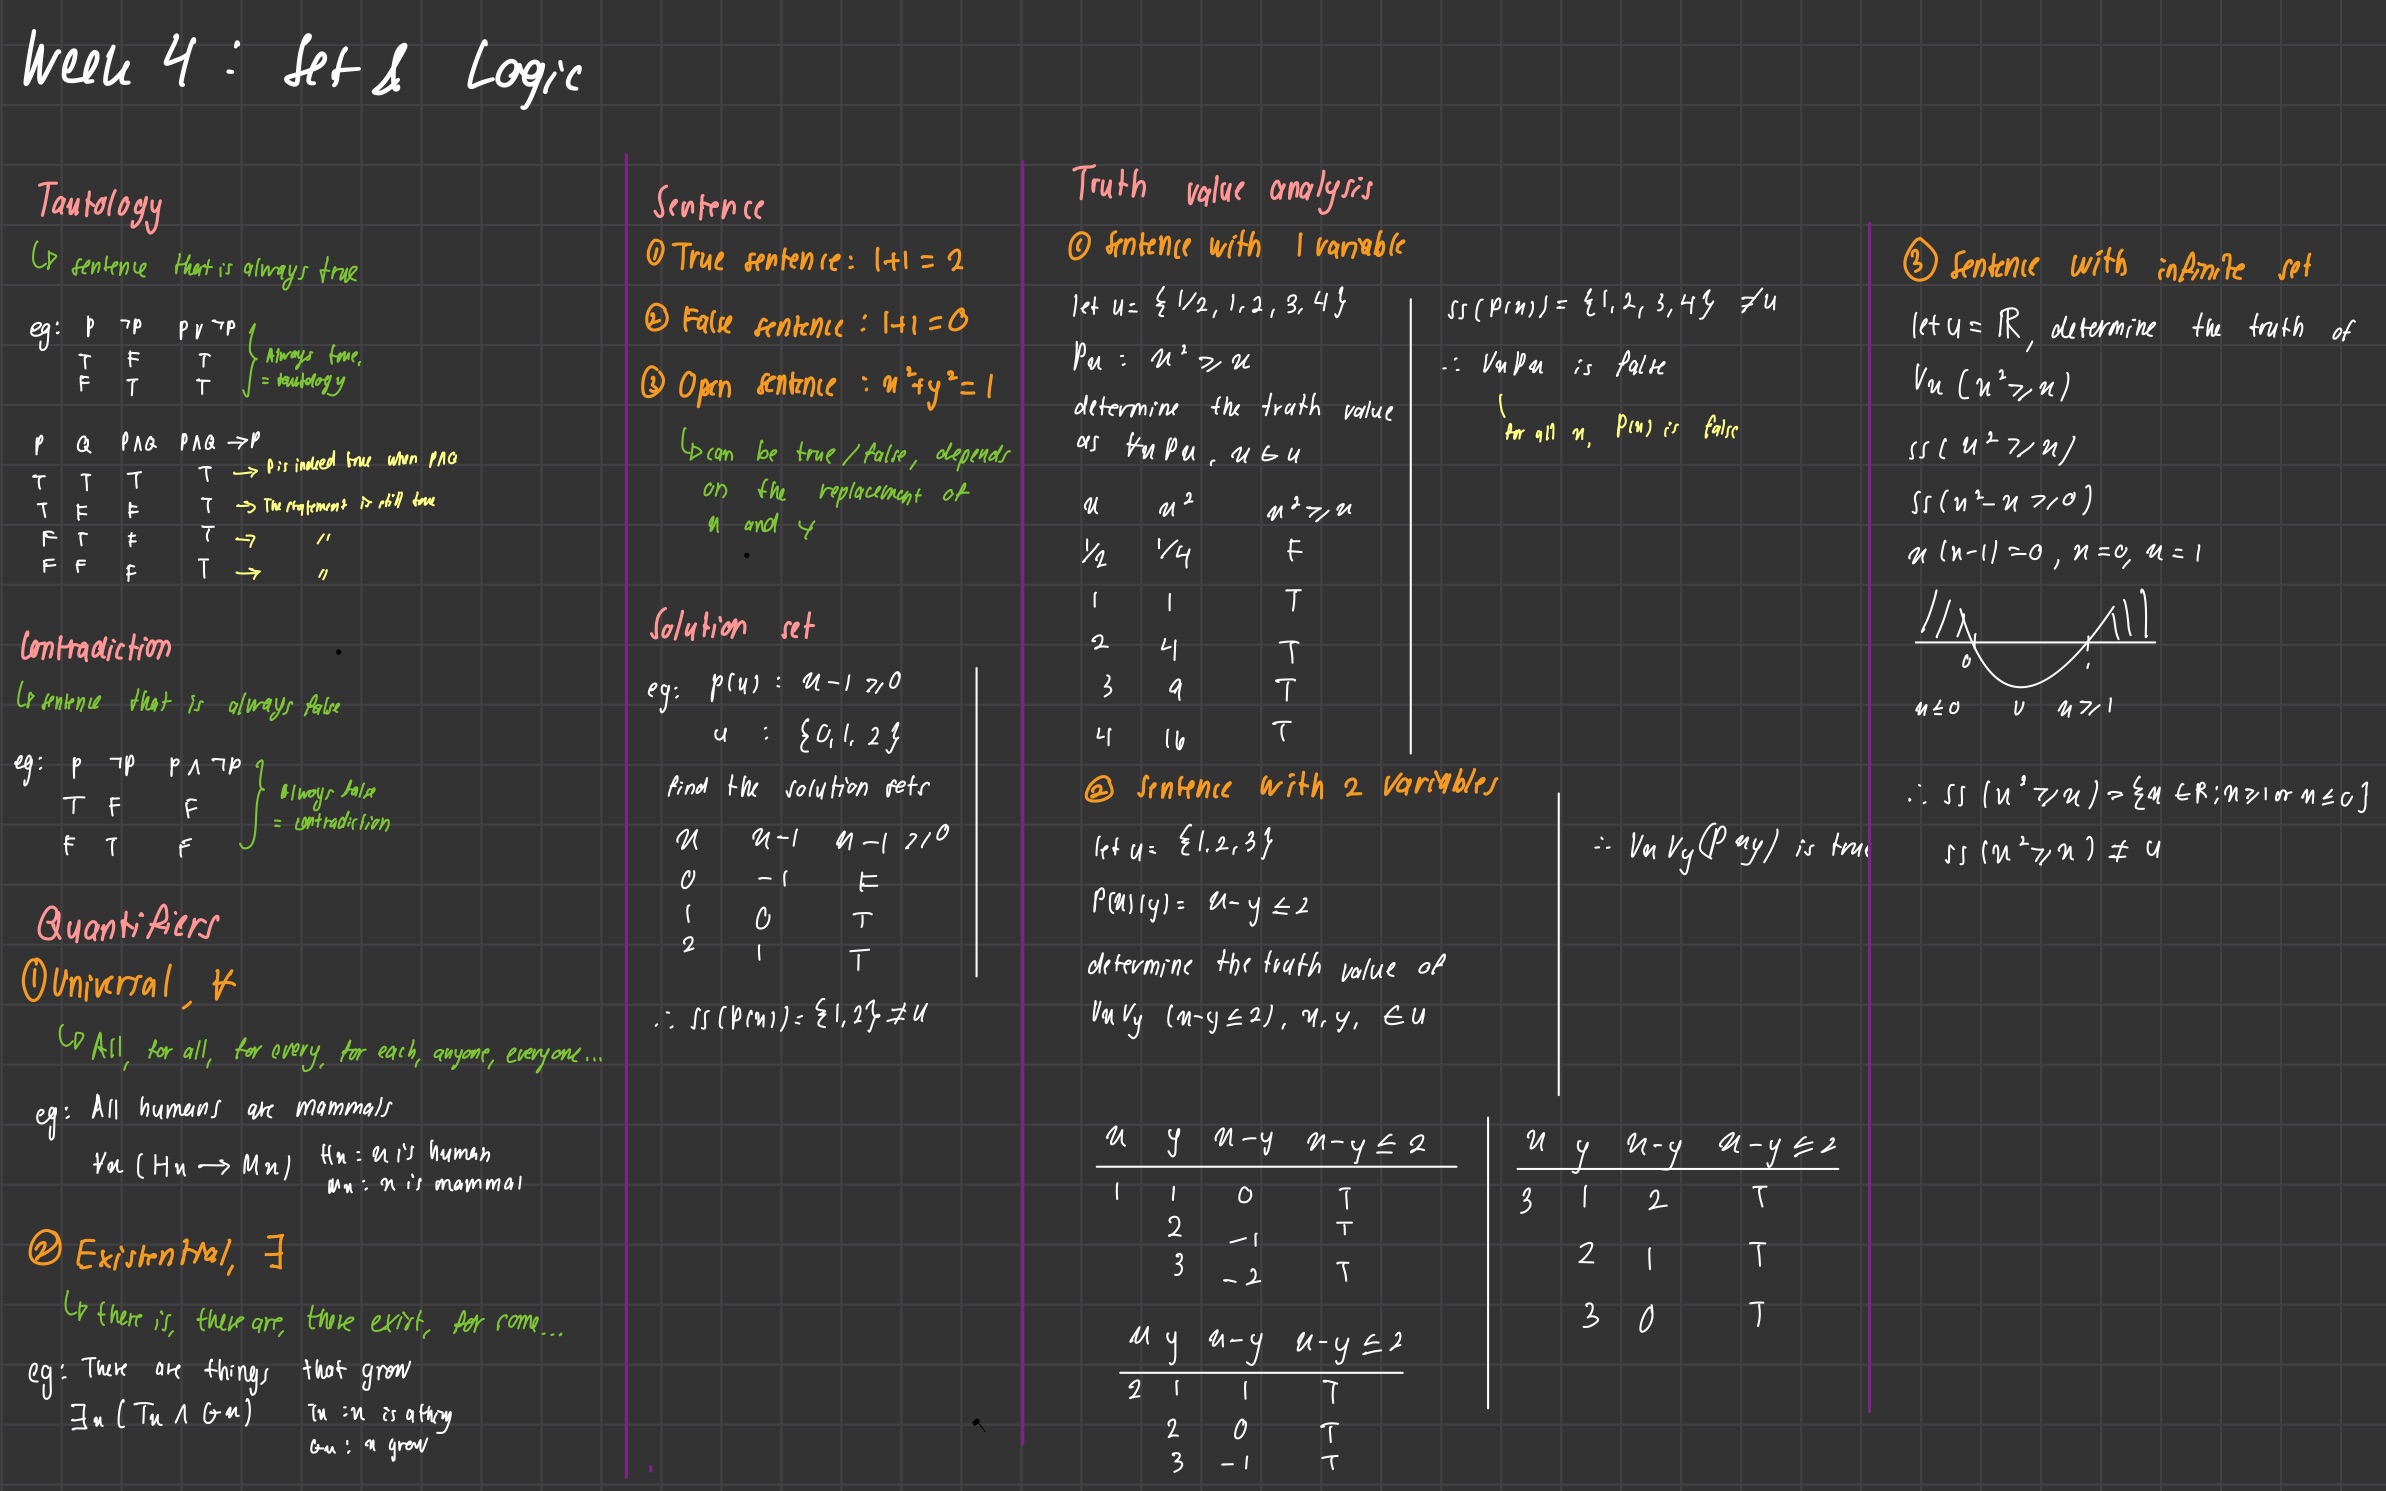 Week 4 : Set & Logic
Tautology
↳ sentence that is always true
eg: P ¬P P∨¬P
T F T
F T T
Always true,
= tautology
P Q P∧Q P∧Q → P
T T T T → P is indeed true when P∧Q
T F F T → The statement is still true
F T F T → "
F F F T → "
Contradiction
↳ sentence that is always false
eg: P ¬P P∧¬P
T F F
F T F
Always false
= contradiction
Quantifiers
① Universal, ∀
↳ All, for all, for every, for each, anyone, everyone...
eg: All humans are mammals
∀x (Hx → Mx)
Hx : x is human
Mx : x is mammal
② Existential, ∃
↳ there is, there are, there exist, for some...
eg: There are things that grow
∃x (Tx ∧ Gx)
Tx : x is a thing
Gx : x grow
Sentence
① True sentence: 1+1 = 2
② False sentence : 1+1 = 0
③ Open sentence : x²+y² = 1
↳ can be true/false, depends
on the replacement of
x and y
Solution set
eg: p(x) : x-1 ≥ 0
u : {0, 1, 2}
find the solution sets
x x-1 x-1 ≥ 0
0 -1 F
1 0 T
2 1 T
∴ ss(P(x)) = {1, 2} ≠ U
Truth value analysis
① Sentence with 1 variable
let u = {1/2, 1, 2, 3, 4}
Px : x² ≥ x
determine the truth value
as ∀xPx, x ∈ u
x x² x² ≥ x
1/2 1/4 F
1 1 T
2 4 T
3 9 T
4 16 T
ss(P(x)) = {1, 2, 3, 4} ≠ u
∴ ∀xPx is false
for all x, P(x) is false
② Sentence with 2 variables
let u = {1, 2, 3}
P(x)(y) = x-y ≤ 2
determine the truth value of
∀x∀y (x-y ≤ 2), x, y, ∈ u
∴ ∀x∀y(Pxy) is true
x y x-y x-y ≤ 2
1 1 0 T
2 -1 T
3 -2 T
x y x-y x-y ≤ 2
2 1 1 T
2 0 T
3 -1 T
x y x-y x-y ≤ 2
3 1 2 T
2 1 T
3 0 T
③ Sentence with infinite set
let u = ℝ, determine the truth of
∀x (x² ≥ x)
ss(x² ≥ x)
ss(x²-x ≥ 0)
x(x-1) = 0, x = 0, x = 1
0 1
x ≤ 0 ∪ x ≥ 1
∴ ss(x² ≥ x) = {x ∈ R; x ≥ 1 or x ≤ 0}
ss(x² ≥ x) ≠ u